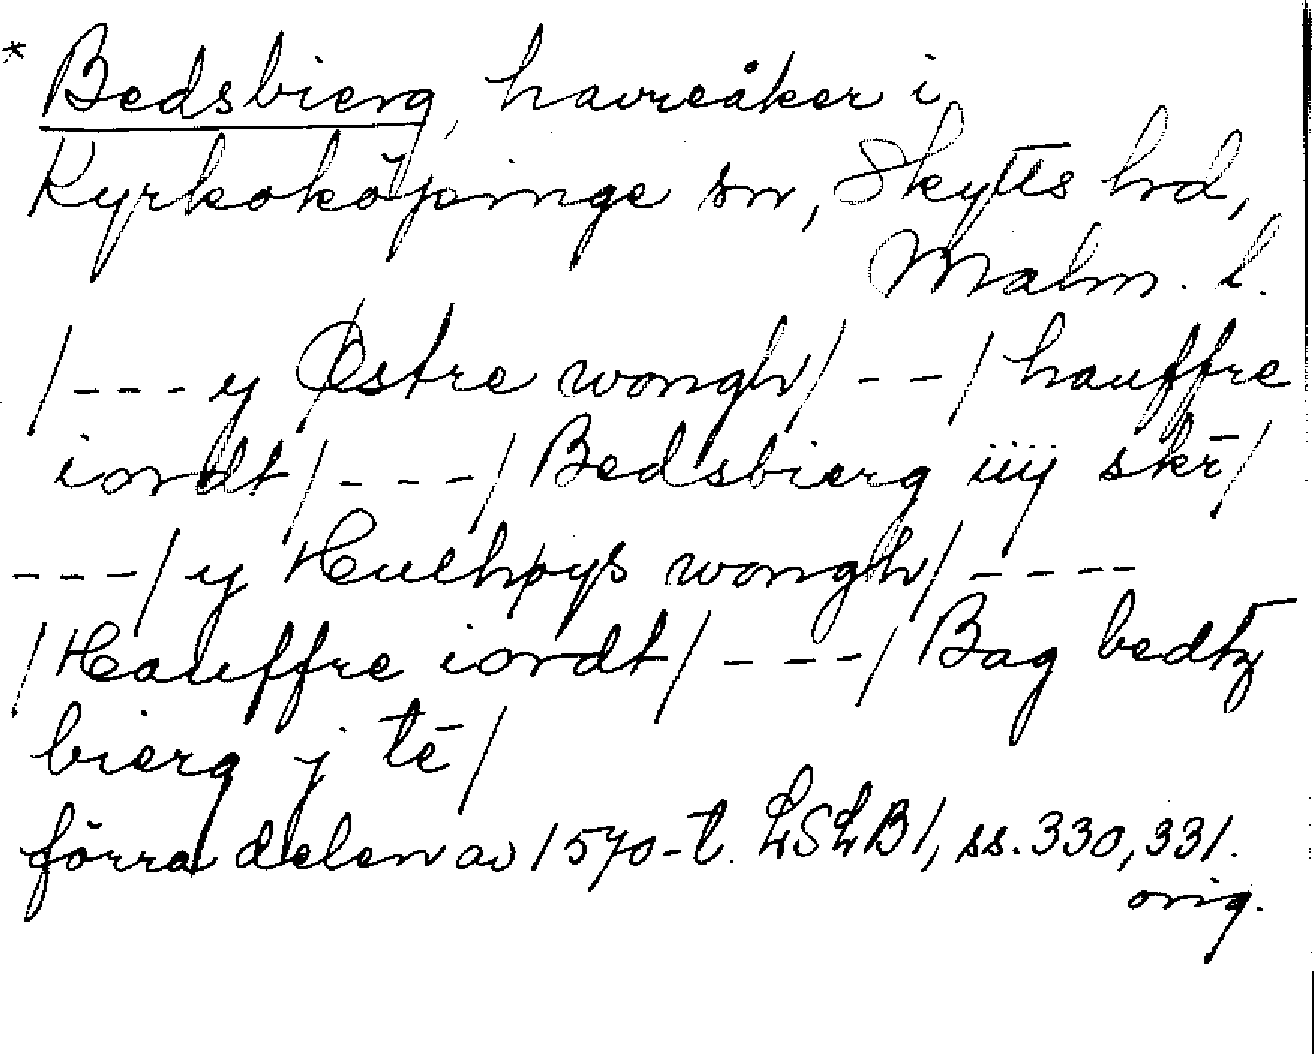 * Bedsbierg, havreåker i
Kyrkoköpinge sn, Skytts hd,
Malm. l.
/---y Østre wongh/--/hauffre
iordt/---/Bedsbierg iiij skr̄/
---/y Huelhøys wongh/----
/Hauffre iordt/---/Bag bedtz
bierg j tē/
förra delen av 1570-t. LSLB1, ss. 330, 331.
orig.